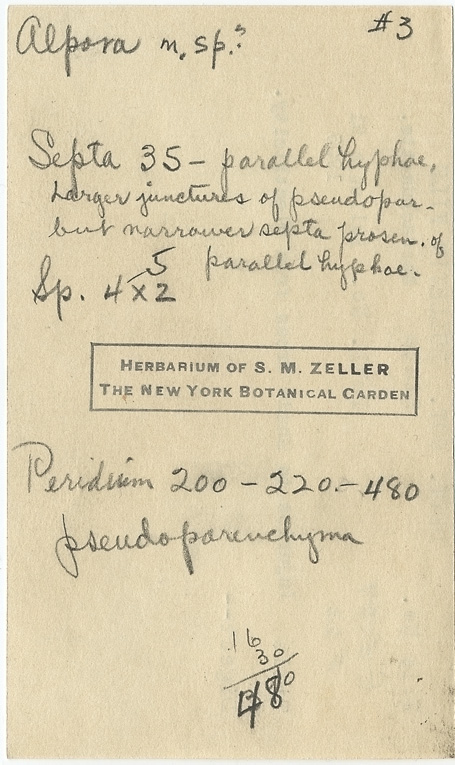 Alpova n. sp.? #3
Septa 35 – parallel hyphae,
Larger junctures of pseudopar-
but narrower septa prosen. of
parallel hyphae.
Sp. 4 x 2
5
HERBARIUM OF S. M. ZELLER
THE NEW YORK BOTANICAL GARDEN
Peridium 200 – 220 – 480
pseudoparenchyma
16
30
480